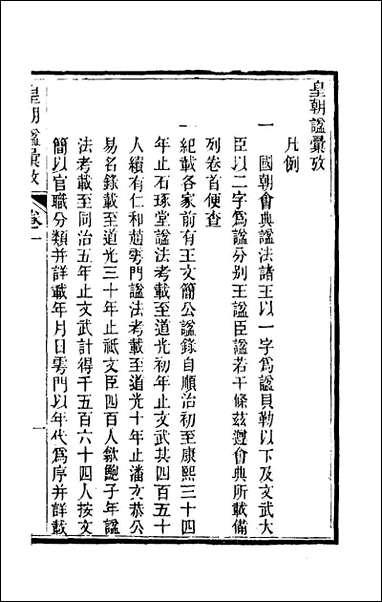 皇朝諡彙攷
凡例
一　國朝會典諡法諸王以一字爲諡貝勒以下及文武大
臣以二字爲諡分别王諡臣諡若干條茲遵會典所載備
列卷首便查
一　紀載各家前有王文簡公諡錄自順治初至康熙三十四
年止石琢堂諡法考載至道光初年止文武共四百五十
人續有仁和趙雩門諡法考載至道光十年止潘文恭公
易名錄載至道光三十年止祗文臣四百人歙鮑子年諡
法考載至同治五年止文武計得千五百六十四人按文
簡以官職分類并詳載年月日雩門以年代爲序并詳載
皇朝諡彙攷
卷一
一